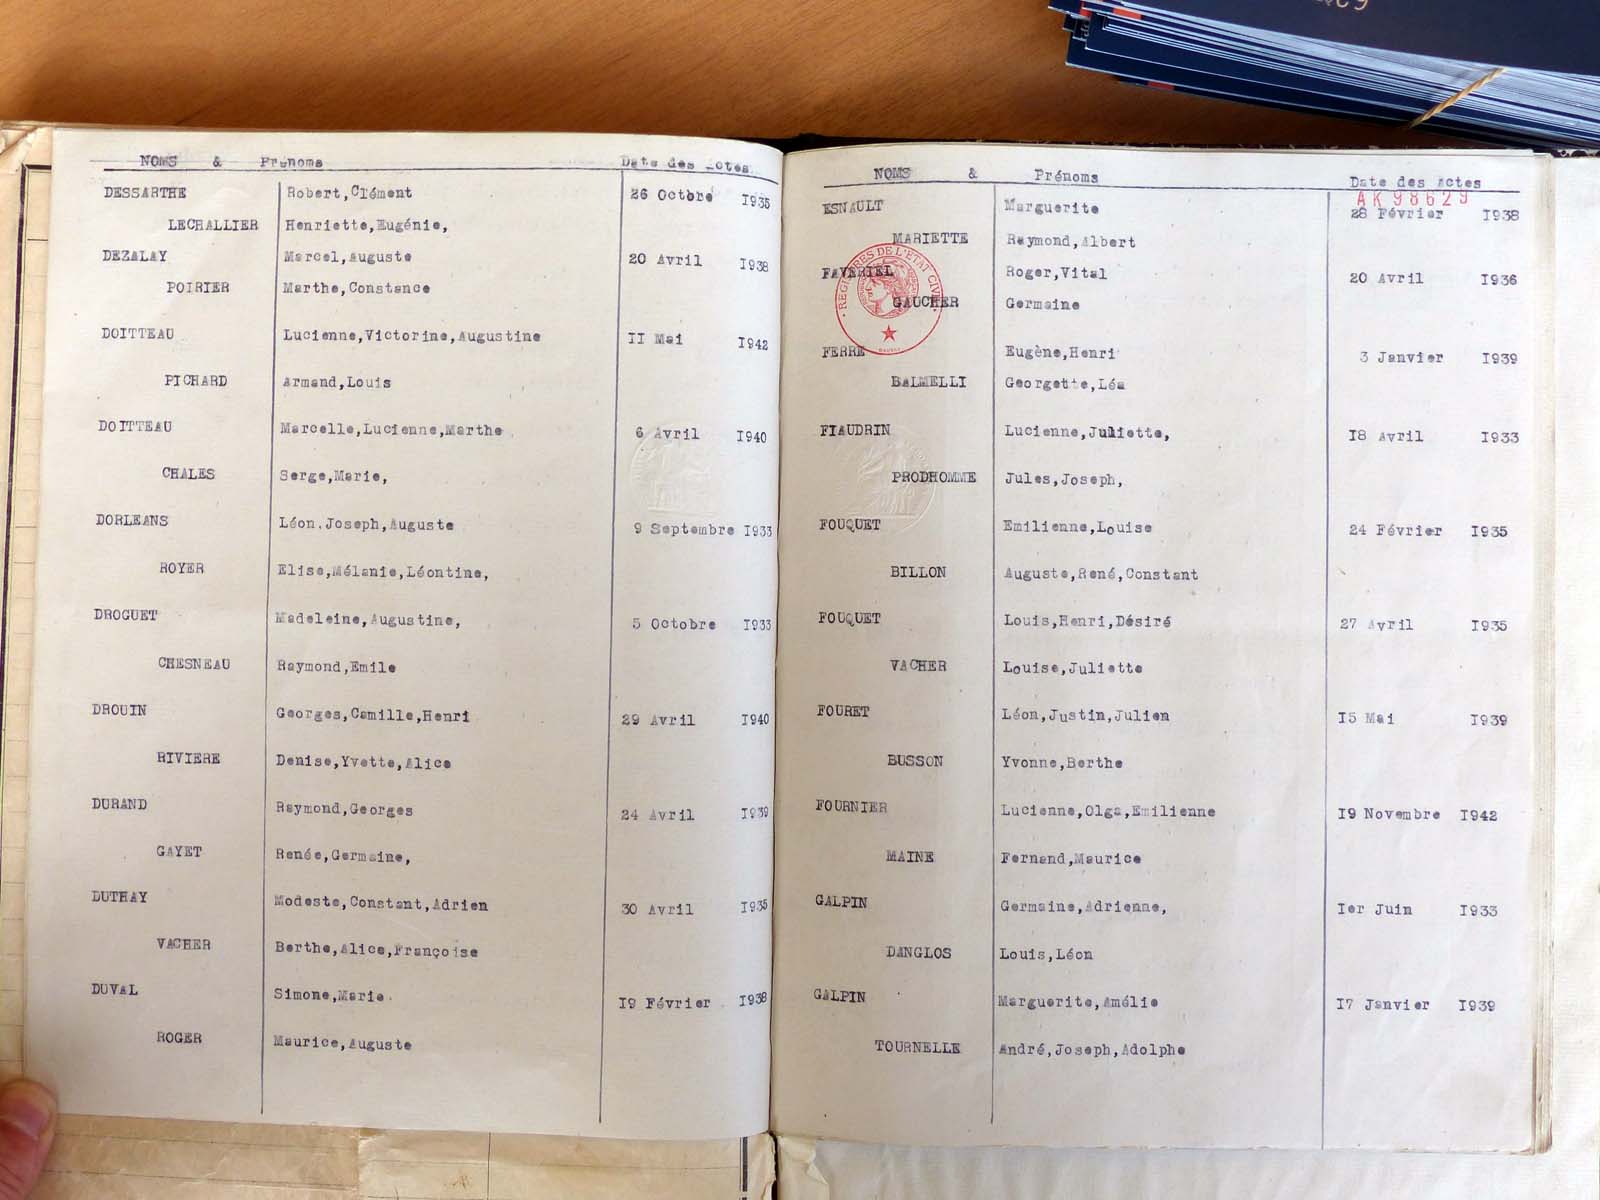 NOMS & Prénoms Date des actes
DESSARTHE Robert,Clément 26 Octobre 1935
LECHALLIER Henriette,Eugénie,
DEZALAY Marcel,Auguste 20 Avril 1938
POIRIER Marthe,Constance
DOITTEAU Lucienne,Victorine,Augustine 11 Mai 1942
PICHARD Armand,Louis
DOITTEAU Marcelle,Lucienne,Marthe 6 Avril 1940
CHALES Serge,Marie,
DORLEANS Léon,Joseph,Auguste 9 Septembre 1933
ROYER Elise,Mélanie,Léontine,
DROGUET Madeleine,Augustine, 5 Octobre 1933
CHESNEAU Raymond,Emile
DROUIN Georges,Camille,Henri 29 Avril 1940
RIVIERE Denise,Yvette,Alice
DURAND Raymond,Georges 24 Avril 1939
GAYET Renée,Germaine,
DUTHAY Modeste,Constant,Adrien 30 Avril 1935
VACHER Berthe,Alice,Françoise
DUVAL Simone,Marie. 19 Février 1938
ROGER Maurice,Auguste
NOMS & Prénoms Date des actes
AK 98629
ESNAULT Marguerite 28 Février 1938
MARIETTE Raymond,Albert
REGISTRES DE L'ETAT CIVIL
FAVERIEL Roger,Vital 20 Avril 1936
GAUCHER Germaine
FERRE Eugène,Henri 3 Janvier 1939
BALMELLI Georgette,Léa
FIAUDRIN Lucienne,Juliette, 18 Avril 1933
PRODHOMME Jules,Joseph,
FOUQUET Emilienne,Louise 24 Février 1935
BILLON Auguste,René,Constant
FOUQUET Louis,Henri,Désiré 27 Avril 1935
VACHER Louise,Juliette
FOURET Léon,Justin,Julien 15 Mai 1939
BUSSON Yvonne,Berthe
FOURNIER Lucienne,Olga,Emilienne 19 Novembre 1942
MAINE Fernand,Maurice
GALPIN Germaine,Adrienne, 1er Juin 1933
DANGLOS Louis,Léon
GALPIN Marguerite,Amélie 17 Janvier 1939
TOURNELLE André,Joseph,Adolphe